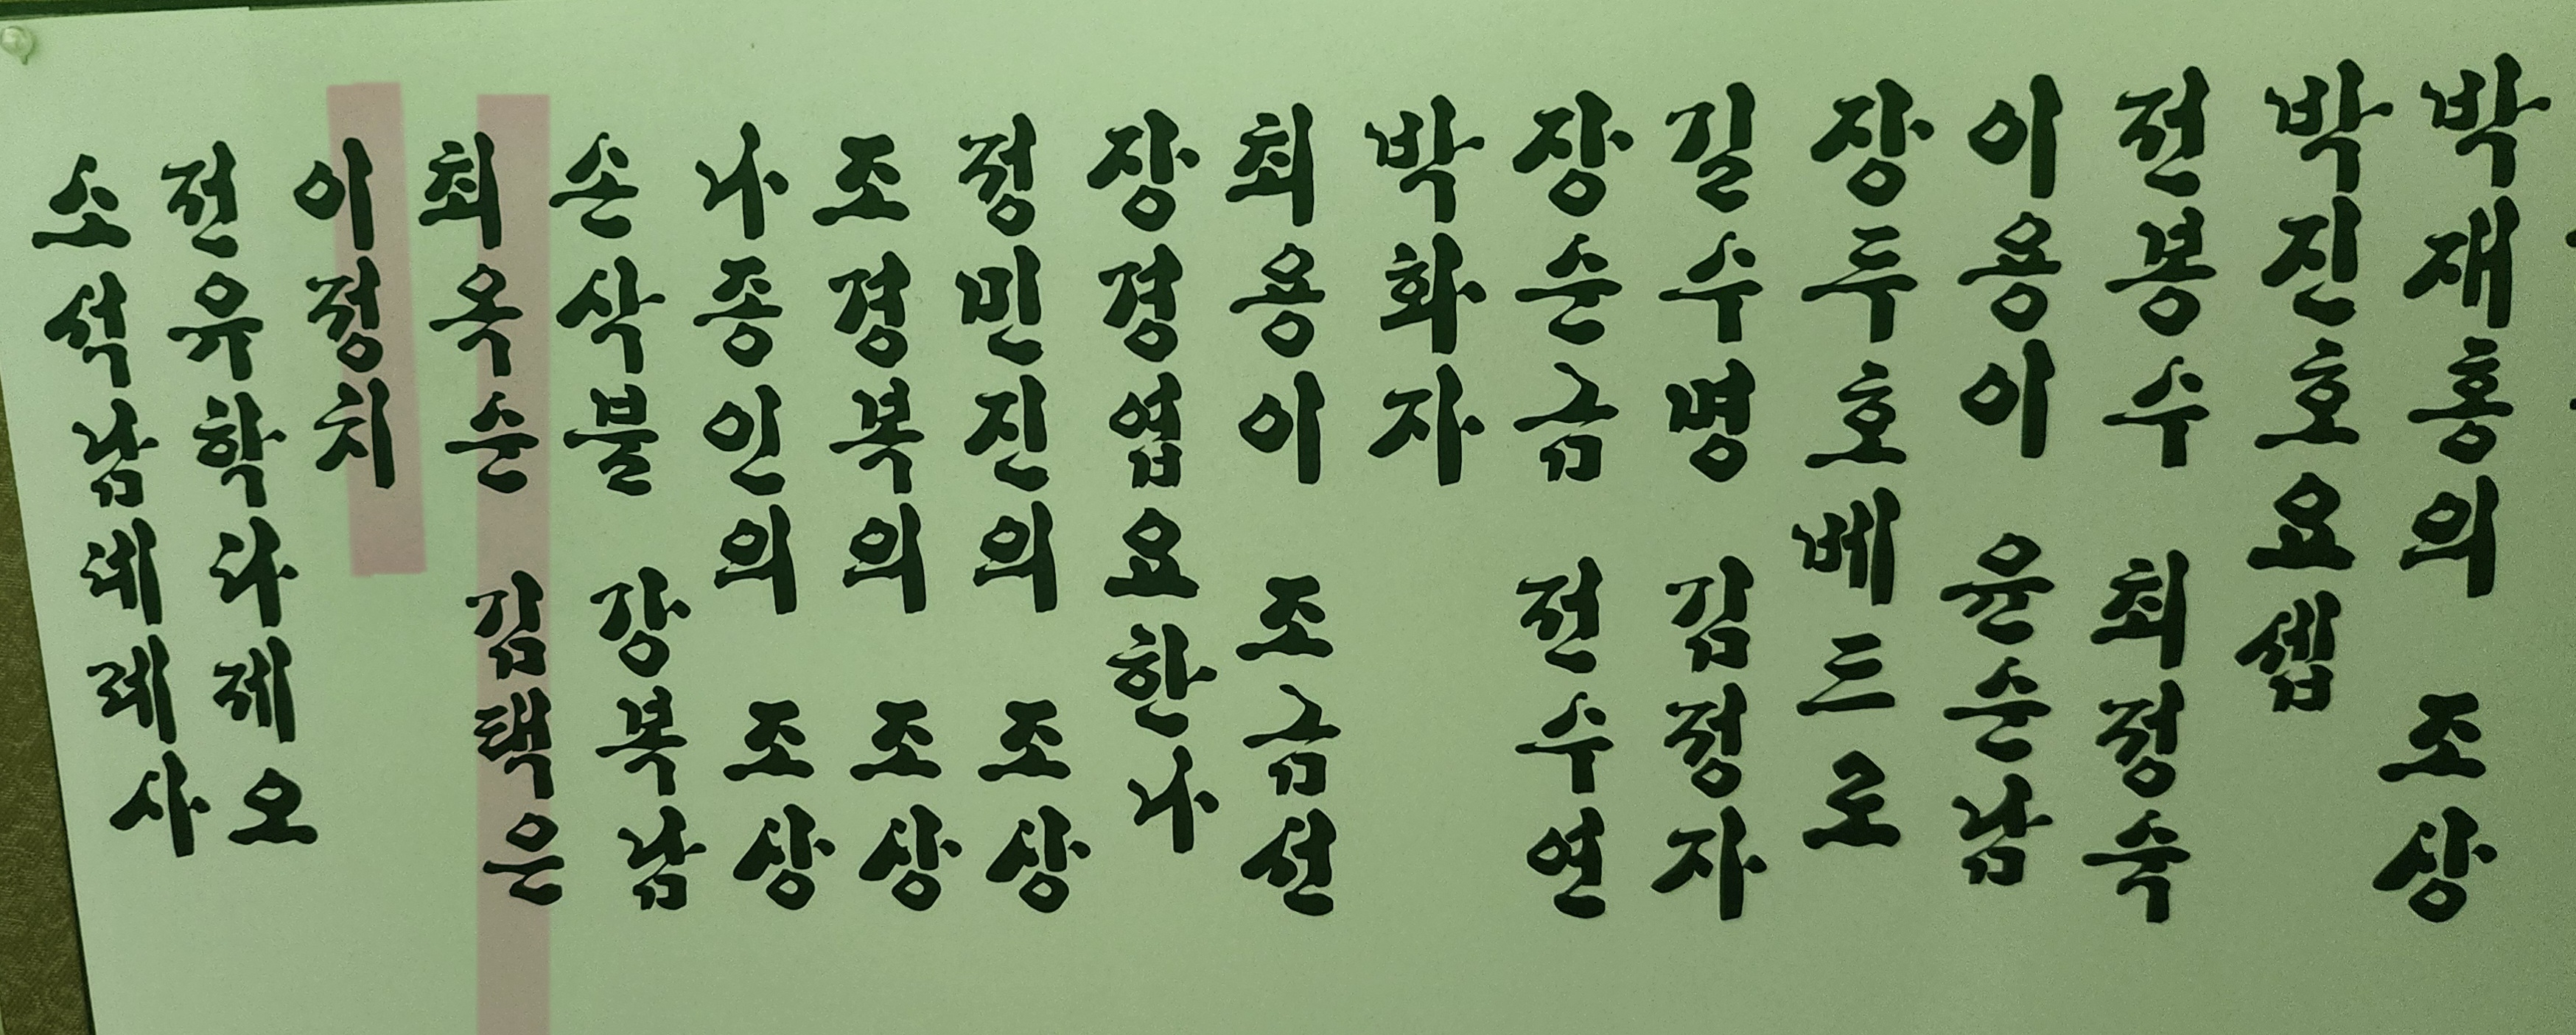 박재홍의 조상
박진호요셉
전봉수 최정숙
이용이 윤순남
장두호베드로
길수명 김정자
장순금 전수연
박화자
최용이 조금선
장경엽요한나
정민진의 조상
조경복의 조상
나종인의 조상
손삭불 강복남
최옥순 김택은
이정치
전유학타제오
소석남데레사